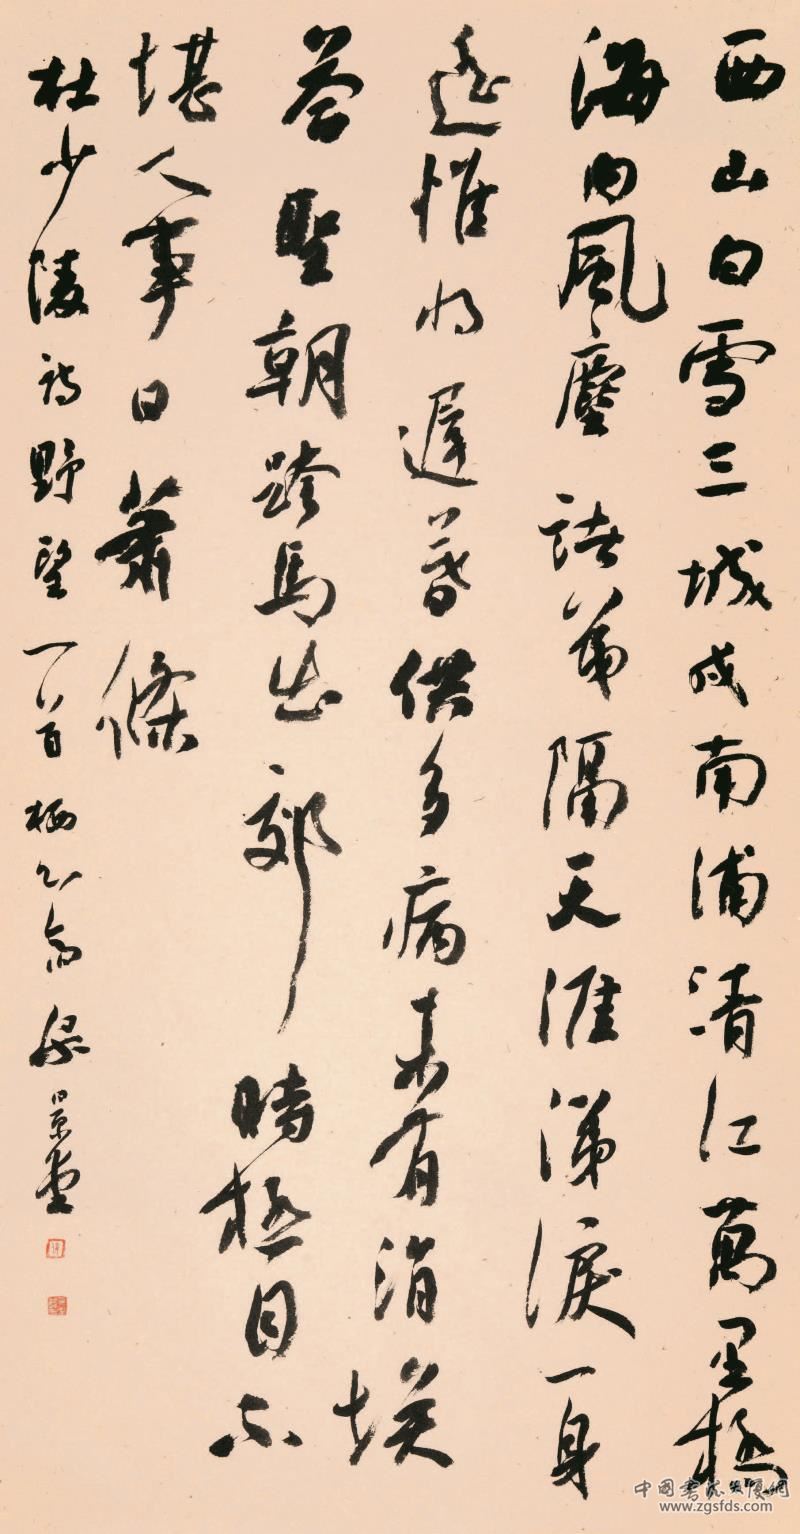 西山白雪三城戍南浦清江萬里橋
海内風塵諸弟隔天涯涕淚一身
遥惟將遲暮供多病未有涓埃
荅聖朝跨馬出郊時極目不
堪人事日蕭條
杜少陵詩野望一首栖心齋景堂
中國書法大厦網
www.zgsfds.com